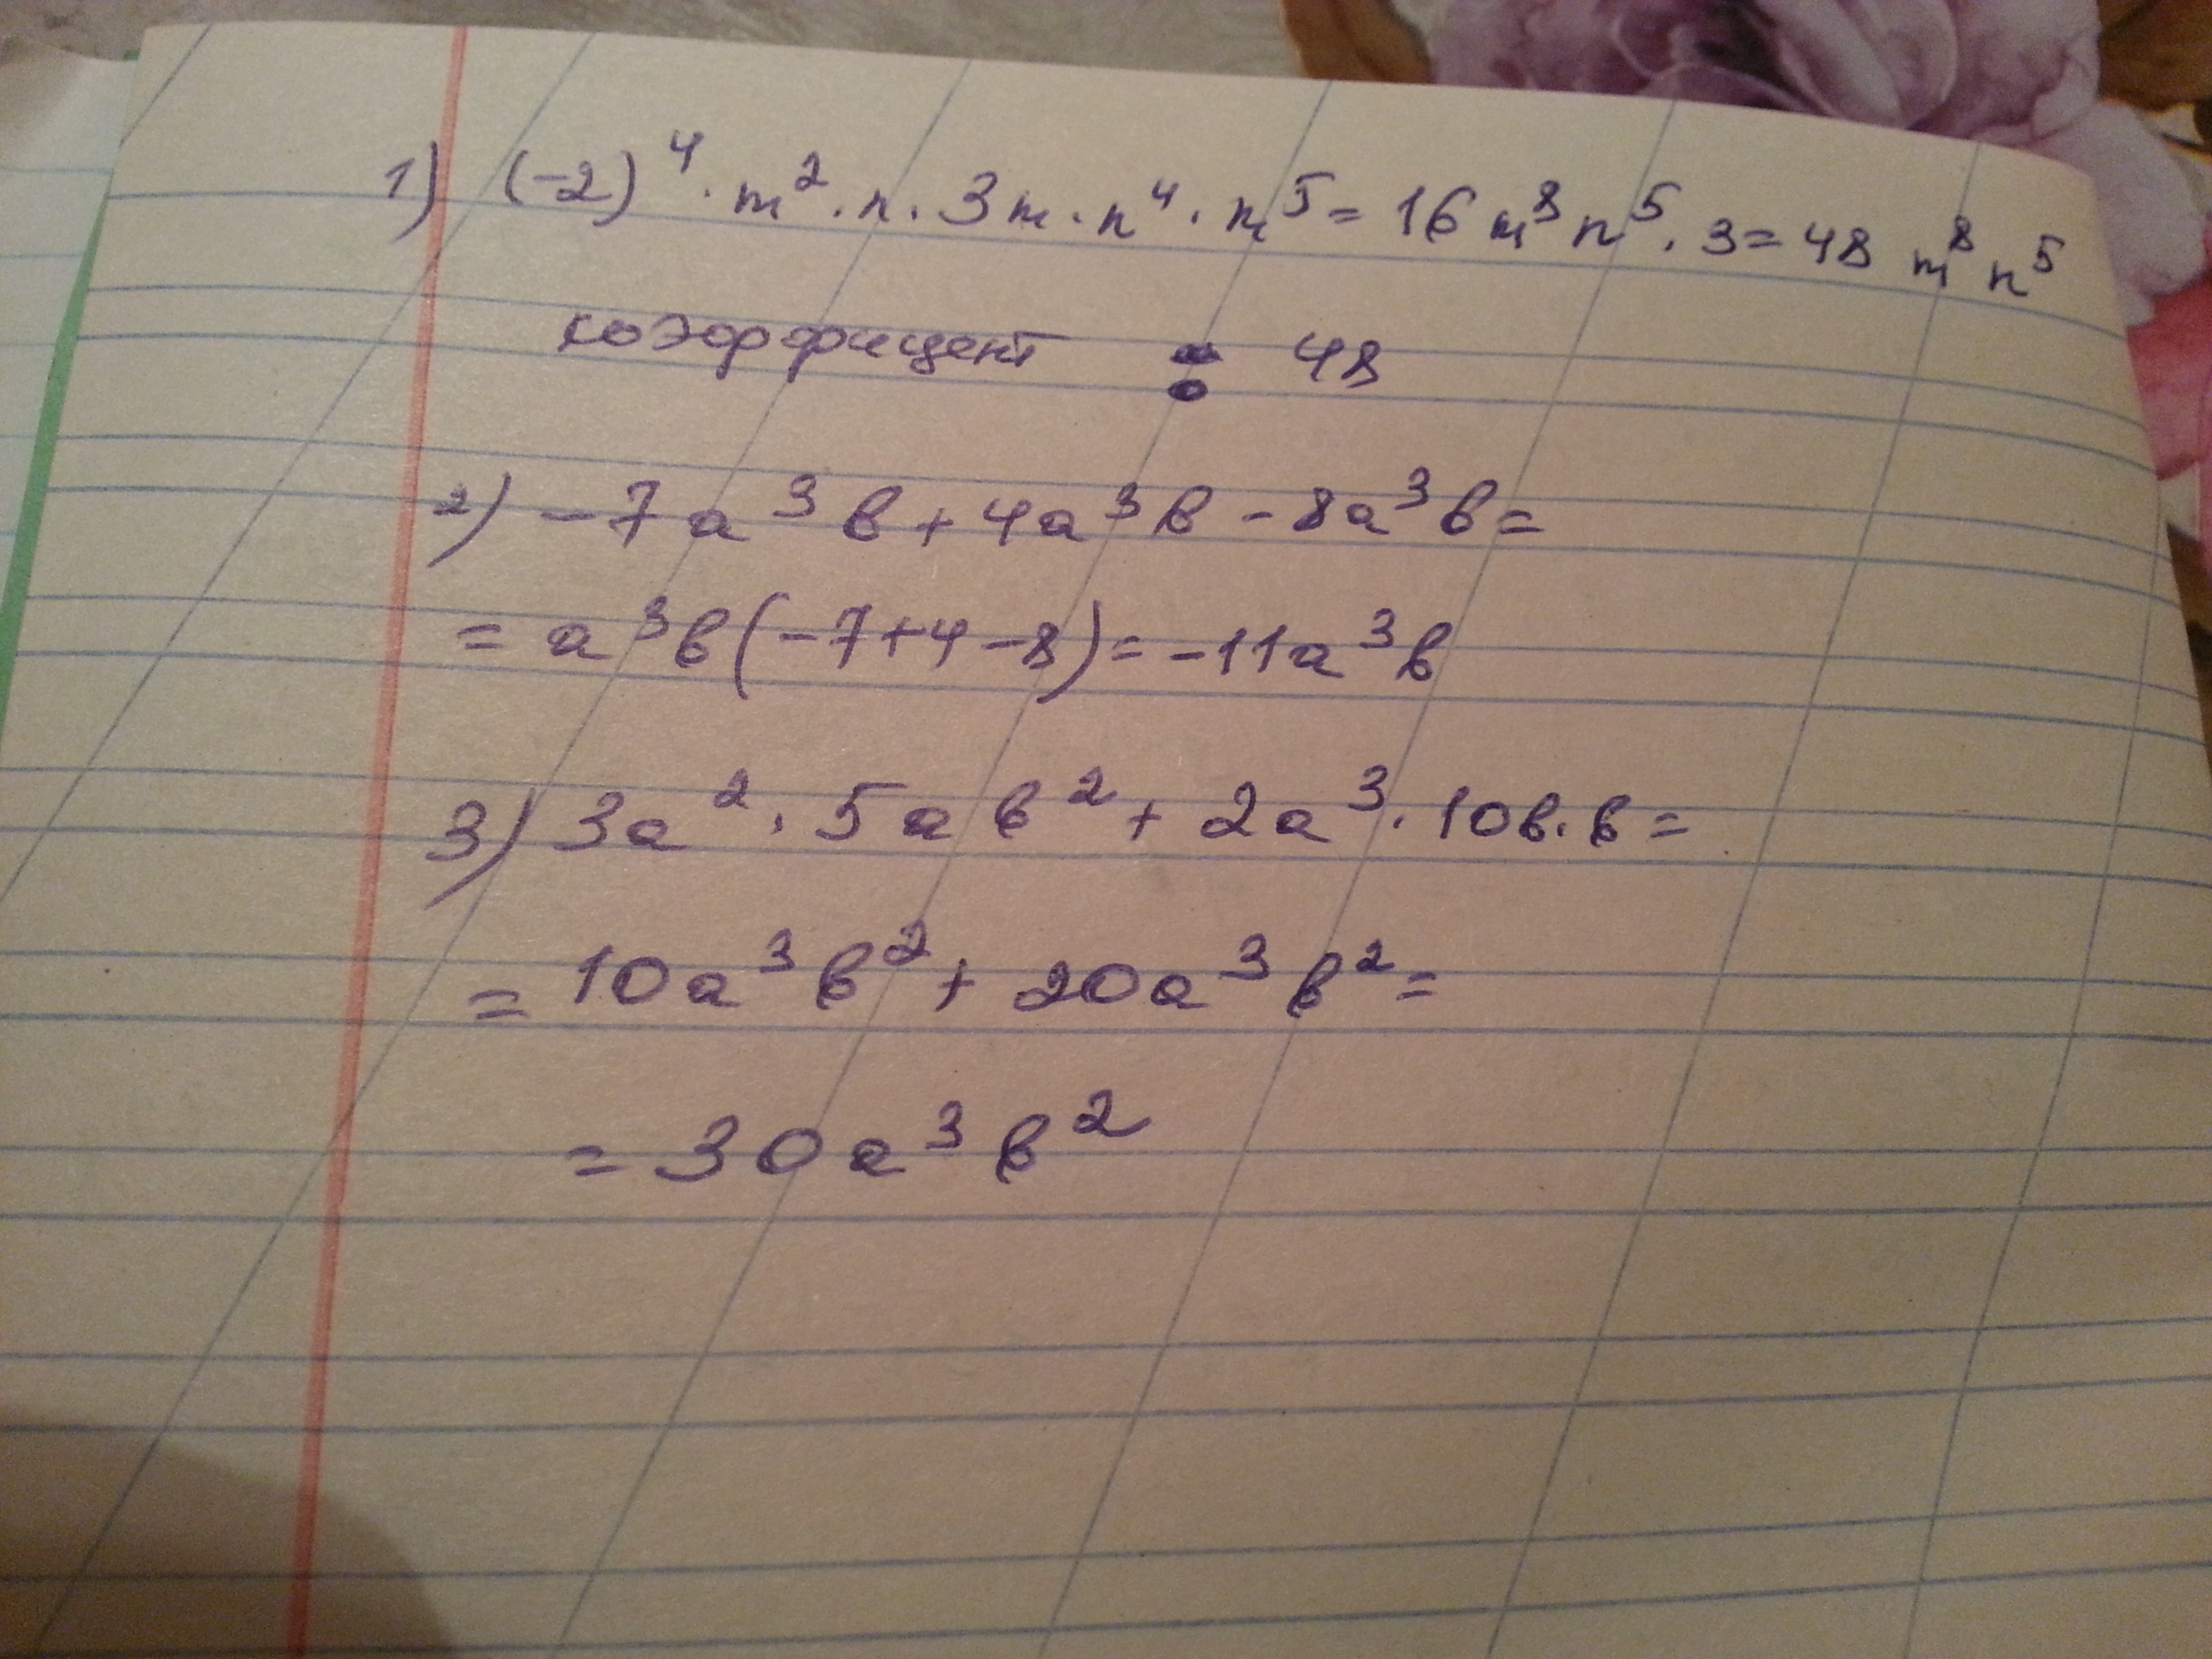 1) (-2)⁴ · m² · n · 3m · n⁴ · m⁵ = 16 m⁸ n⁵ · 3 = 48 m⁸ n⁵
коэффицент : 48
2) -7a³b + 4a³b - 8a³b =
= a³b(-7+4-8) = -11a³b
3) 3a² · 5ab² + 2a³ · 10b · b =
= 10a³b² + 20a³b² =
= 30a³b²